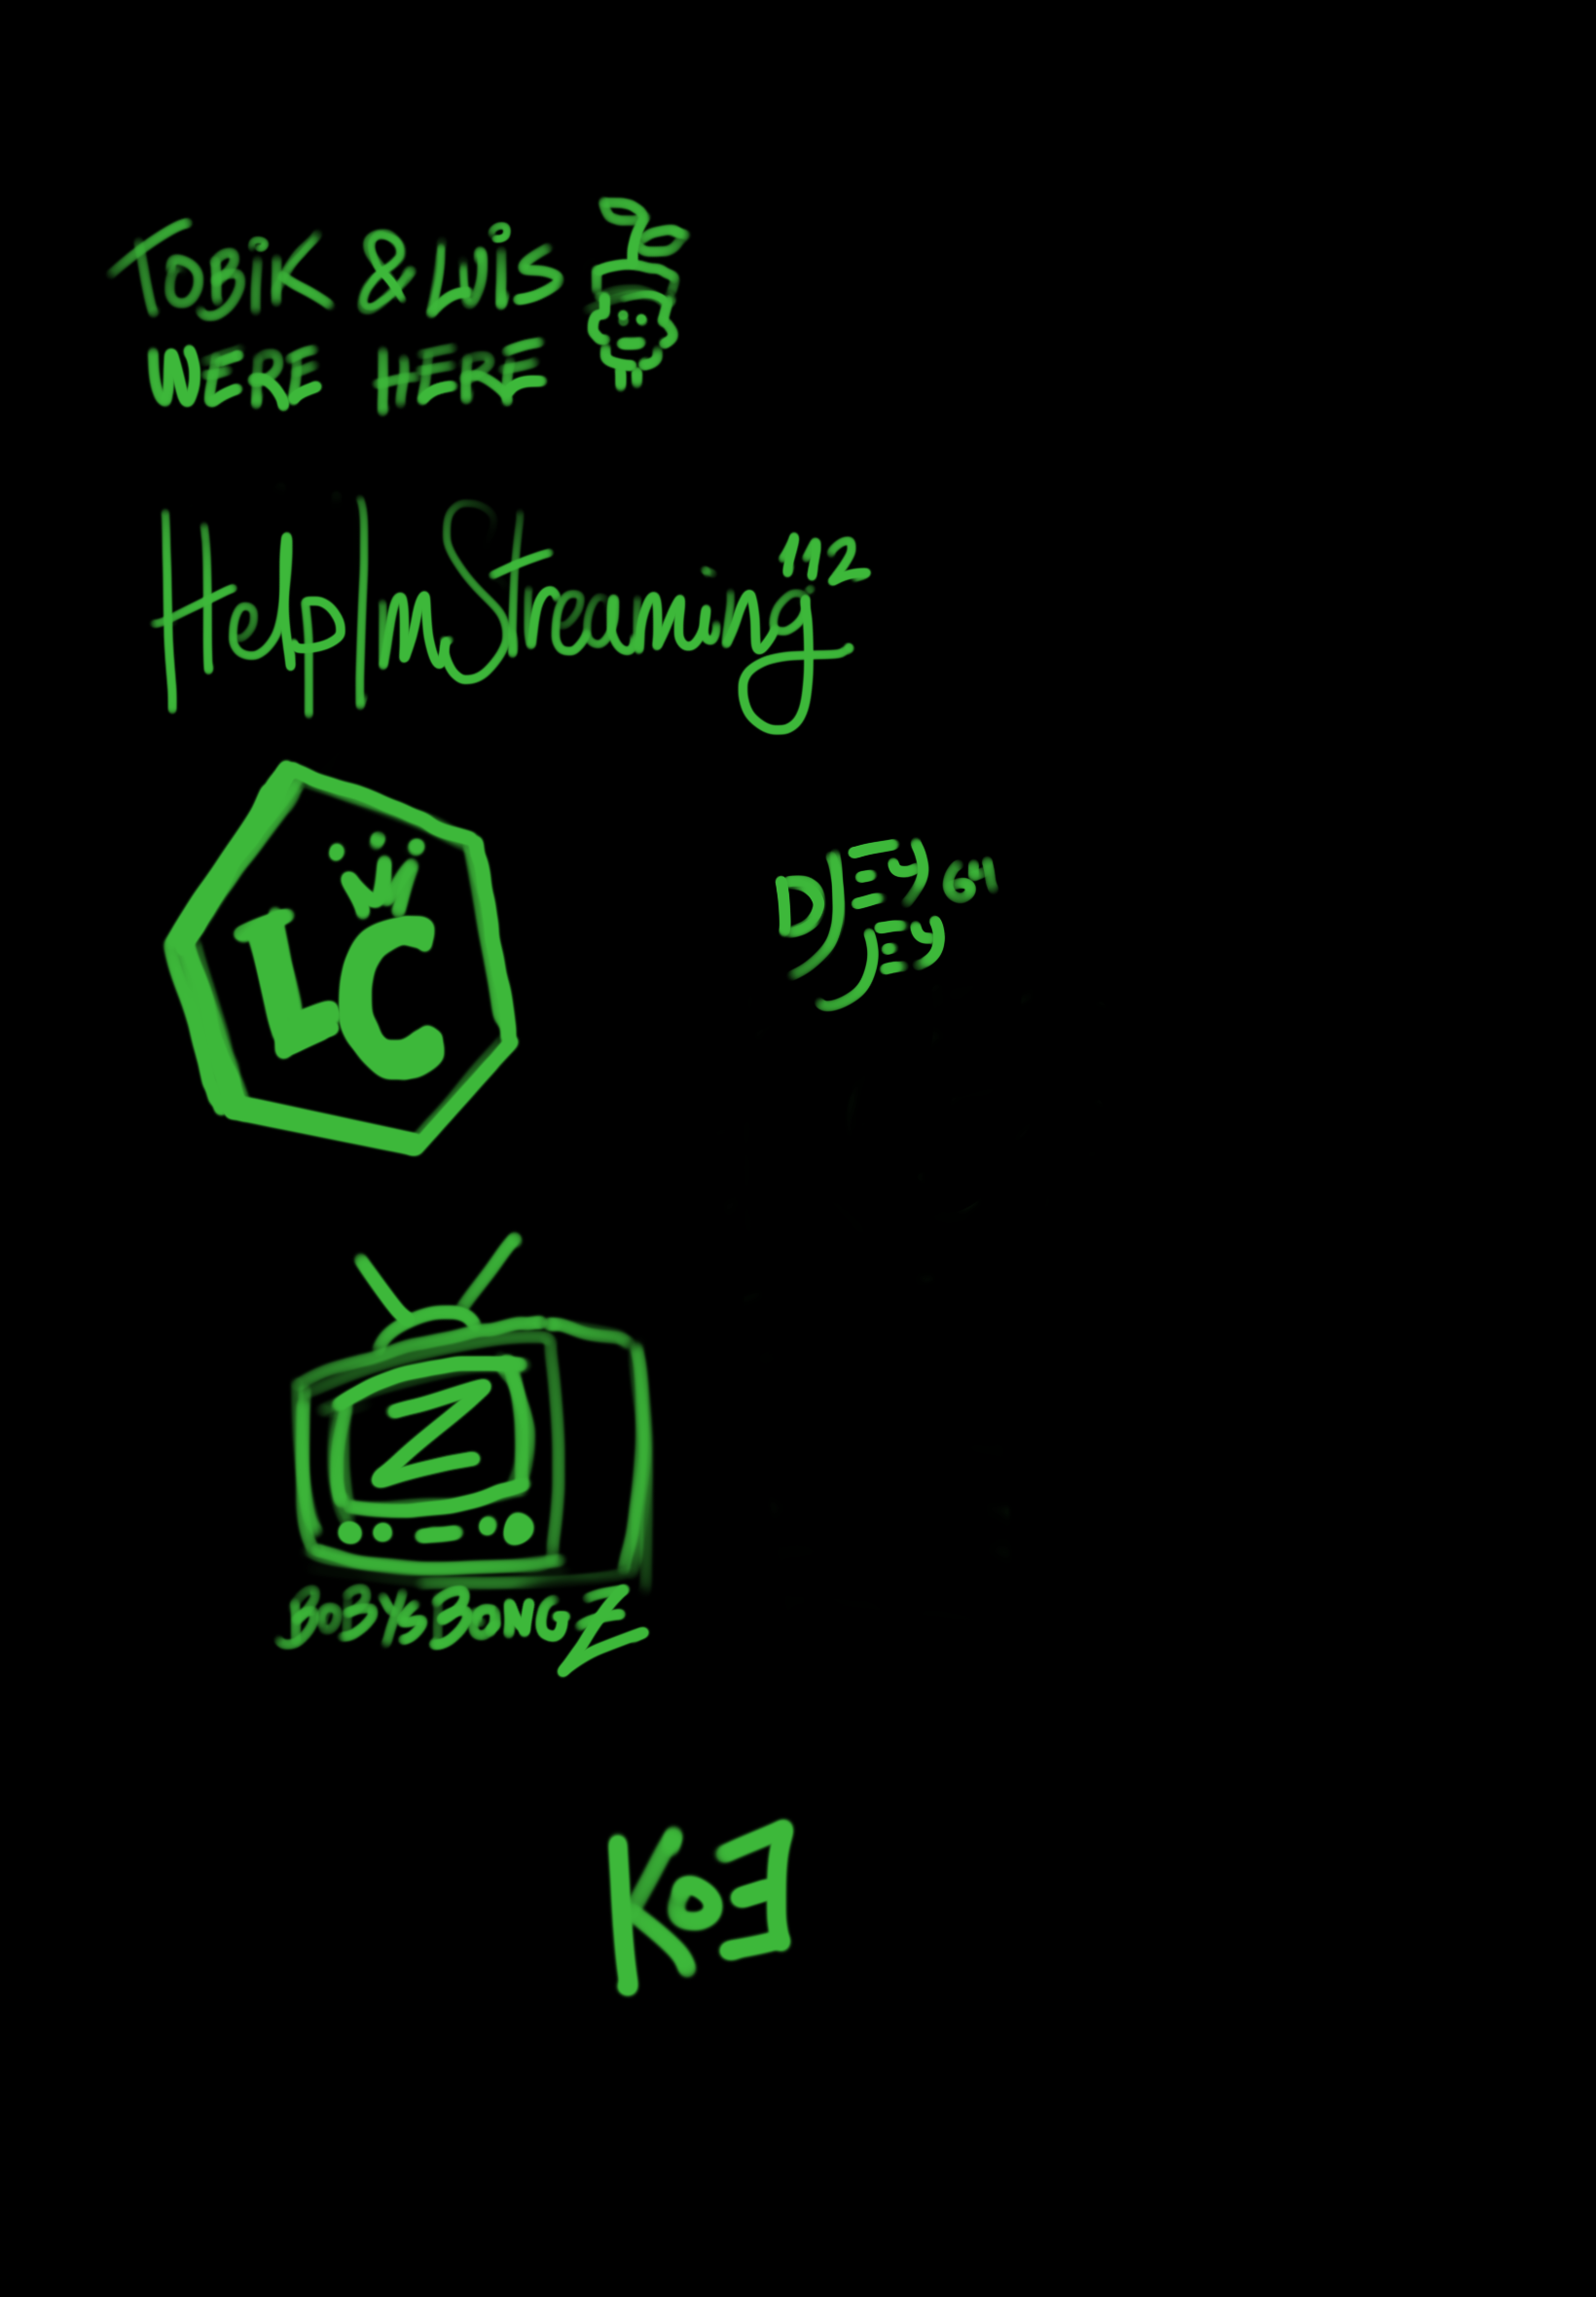 TOBiK & LUiS
WERE HERE
HelpImStreaming112
LC
DJEY64
JEY
Z
BOBYSBONGZ
KOƎ